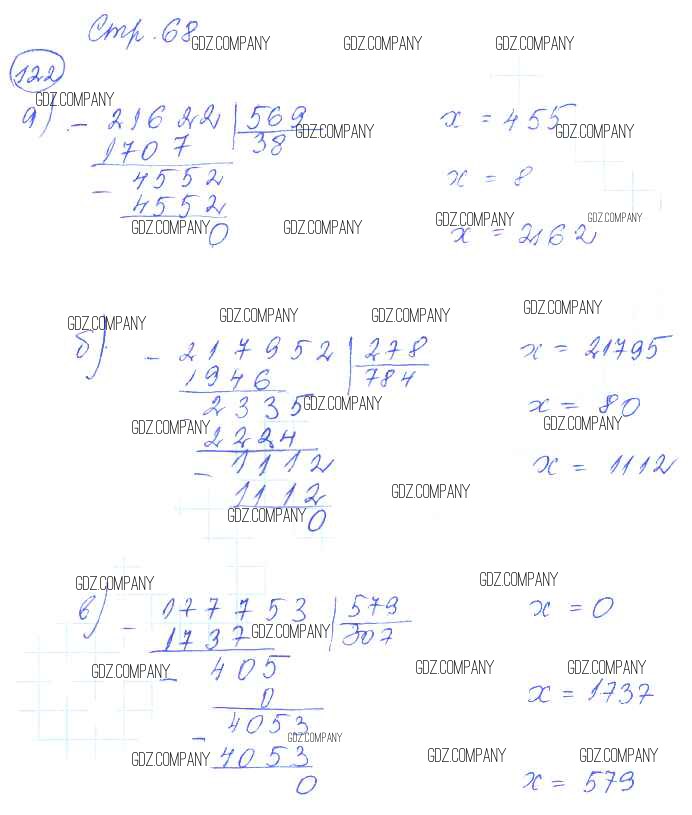 Стр. 68
GDZ.COMPANY GDZ.COMPANY GDZ.COMPANY
122
GDZ.COMPANY
а) - 21622 | 569 x = 455
GDZ.COMPANY GDZ.COMPANY
1707 38
- 4552 x = 8
4552
GDZ.COMPANY GDZ.COMPANY GDZ.COMPANY GDZ.COMPANY
0 x = 2162
GDZ.COMPANY GDZ.COMPANY GDZ.COMPANY GDZ.COMPANY
б) - 217952 | 278 x = 21795
1946 784
- 2335 GDZ.COMPANY x = 80
GDZ.COMPANY GDZ.COMPANY
2224
- 1112 x = 1112
1112 GDZ.COMPANY
GDZ.COMPANY 0
GDZ.COMPANY GDZ.COMPANY
в) - 177753 | 579 x = 0
1737 GDZ.COMPANY 307
- 405
GDZ.COMPANY GDZ.COMPANY GDZ.COMPANY
0 x = 1737
- 4053 GDZ.COMPANY
4053
GDZ.COMPANY GDZ.COMPANY GDZ.COMPANY
0 x = 579